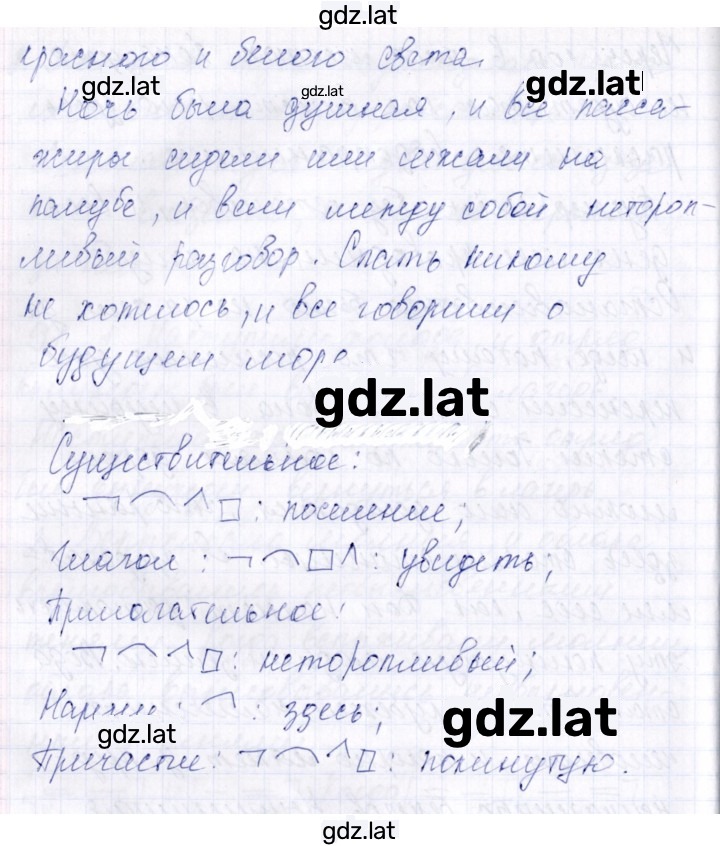 gdz.lat
красного и белого света.
gdz.lat gdz.lat gdz.lat
Ночь была душная, и все пасса-
жиры сидели или лежали на
палубе, и вели между собой нетороп-
ливый разговор. Спать никому
не хотелось, и все говорили о
будущем море
gdz.lat
Существительное:
¬⌒^□: поселение;
Глагол: ¬⌒□^: увидеть;
Прилагательное:
¬⌒^□: неторопливый;
Наречие: ⌒: здесь;
gdz.lat gdz.lat
Причастие: ¬⌒^□: покинутую.
gdz.lat